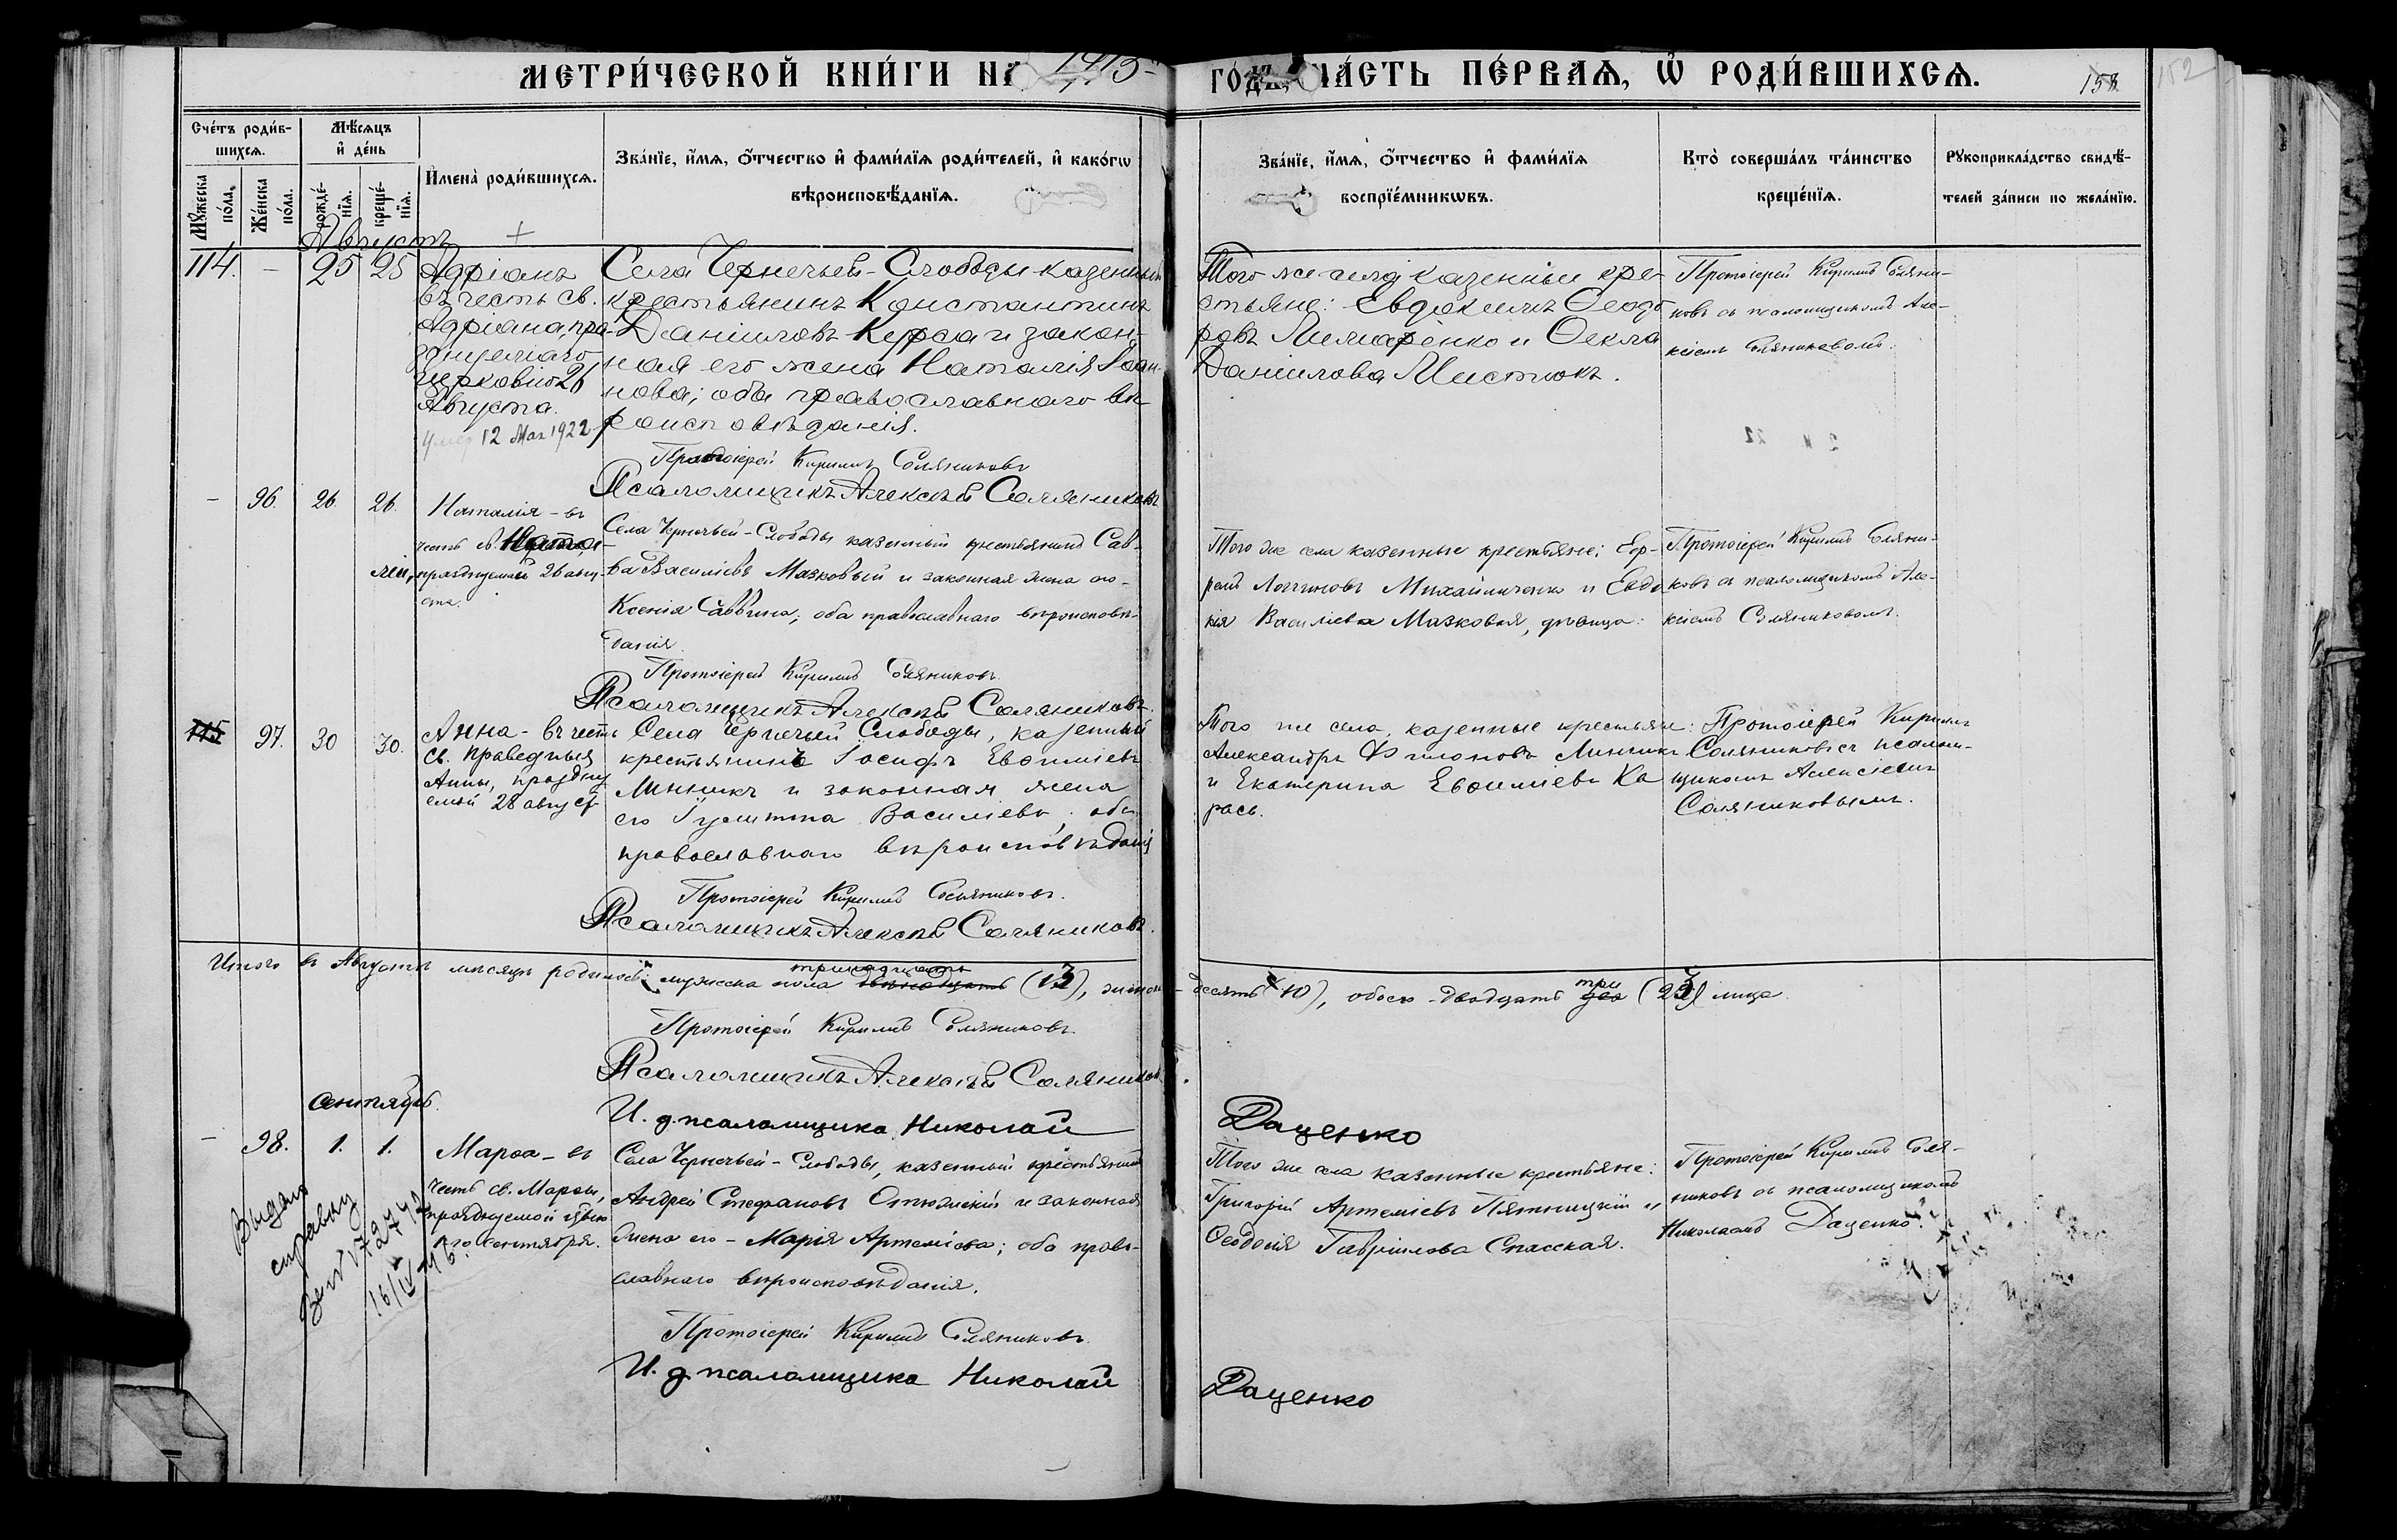 МЕТРИ́ЧЕСКОЙ КНИ́ГИ НА 1913
ГО́ДЪ, ЧА́СТЬ ПЕ́РВАѦ, Ѡ҆ РОДИ́ВШИХСѦ.
152
Сче́тъ роди́в-
шихсѧ.
Мѣ́сѧцъ
и҆ де́нь
Мꙋ́жеска
по́ла.
Же́нска
по́ла.
рожде́-
нїѧ.
креще́-
нїѧ.
И҆мена̀ роди́вшихсѧ.
Зва́нїе, и҆́мѧ, ѻ҆́тчество и҆ фами́лїѧ роди́телей, и҆ како́гѡ
вѣроисповѣ́данїѧ.
Зва́нїе, и҆́мѧ, ѻ҆́тчество и҆ фами́лїѧ
воспрїе́мникѡвъ.
Кто̀ соверша́лъ та́инство
креще́нїѧ.
Рꙋкоприкла́дство свидѣ́-
телей за́писи по жела́нїю.
Августъ
114. - 25 25
Адріанъ
въ честь св.
Адріана, пра-
зднуемаго
церковію 26
Августа.
умер 12 Мая 1922
Села Чернечьей-Слободы казенный
крестьянинъ Константинъ
Даніиловъ Курса и закон-
ная его жена Наталія Іоан-
нова; оба православнаго вѣ-
роисповѣданія.
Протоіерей Кириллъ Соляниковъ
Псаломщикъ Алексѣй Соляниковъ
Того же села казенные кре-
стьяне: Евдокимъ Ѳеодо
ровъ Лимаренко и Ѳекла
Даніилова Мистюкъ.
Протоіерей Кириллъ Соляни-
ковъ съ псаломщикомъ Але-
ксіемъ Соляниковомъ.
- 96. 26. 26.
Наталія - въ
честь св. Ната-
ліи, празднуемой 26 авгу-
ста.
Села Чернечьей-Слободы казенный крестьянинъ Сав-
ва Василіевъ Мазковый и законная жена его -
Ксенія Саввина; оба православнаго вѣроисповѣ-
данія.
Протоіерей Кириллъ Соляниковъ.
Псаломщикъ Алексѣй Соляниковъ.
Того же села казенные крестьяне: Еф-
ремъ Логгиновъ Михайличенко и Евдо
кія Василіева Мазковая, дѣвица.
Протоіерей Кириллъ Соляни-
ковъ съ псаломщикомъ Але-
ксіемъ Соляниковомъ.
115 97. 30 30.
Анна - въ честь
св. праведныя
Анны, праздну
емой 28 август
Села Чернечьей Слободы, казенный
крестьянинъ Іосифъ Евѳиміевъ
Линникъ и законная жена
его Іулитта Василіева; оба
православнаго вѣроисповѣданія
Протоіерей Кириллъ Соляниковъ.
Псаломщикъ Алексѣй Соляниковъ.
Того же села, казенные крестьяне:
Александръ Филоновъ Линникъ
и Екатерина Евѳиміева Ка
рась.
Протоіерей Кириллъ
Соляниковъ съ псалом-
щикомъ Алексіемъ
Соляниковымъ.
Итого въ Августѣ мѣсяцѣ родилось: мужеска пола двѣнадцать тринадцать (13), женска - десять (10), обоего - двадцать два три (23) лица.
Протоіерей Кириллъ Соляниковъ.
Псаломщикъ Алексѣй Соляниковъ.
И. д. псаломщика Николай Даценко
Сентябрь.
- 98. 1. 1.
Марѳа - въ
честь св. Марѳы,
празднуемой
1-го Сентября.
Выдано
справку
16/IV
Села Чернечьей-Слободы, казенный крестьянинъ
Андрей Стефановъ и законная
жена его - Марія Артеміева; оба право-
славнаго вѣроисповѣданія.
Протоіерей Кириллъ Соляниковъ.
И. д. псаломщика Николай Даценко
Того же села казенные крестьяне:
Григорій Артеміевъ Пятницкій и
Ѳеодосія Гавріилова Спасская.
Протоіерей Кириллъ Соля-
никовъ съ псаломщикомъ
Николаемъ Даценко.